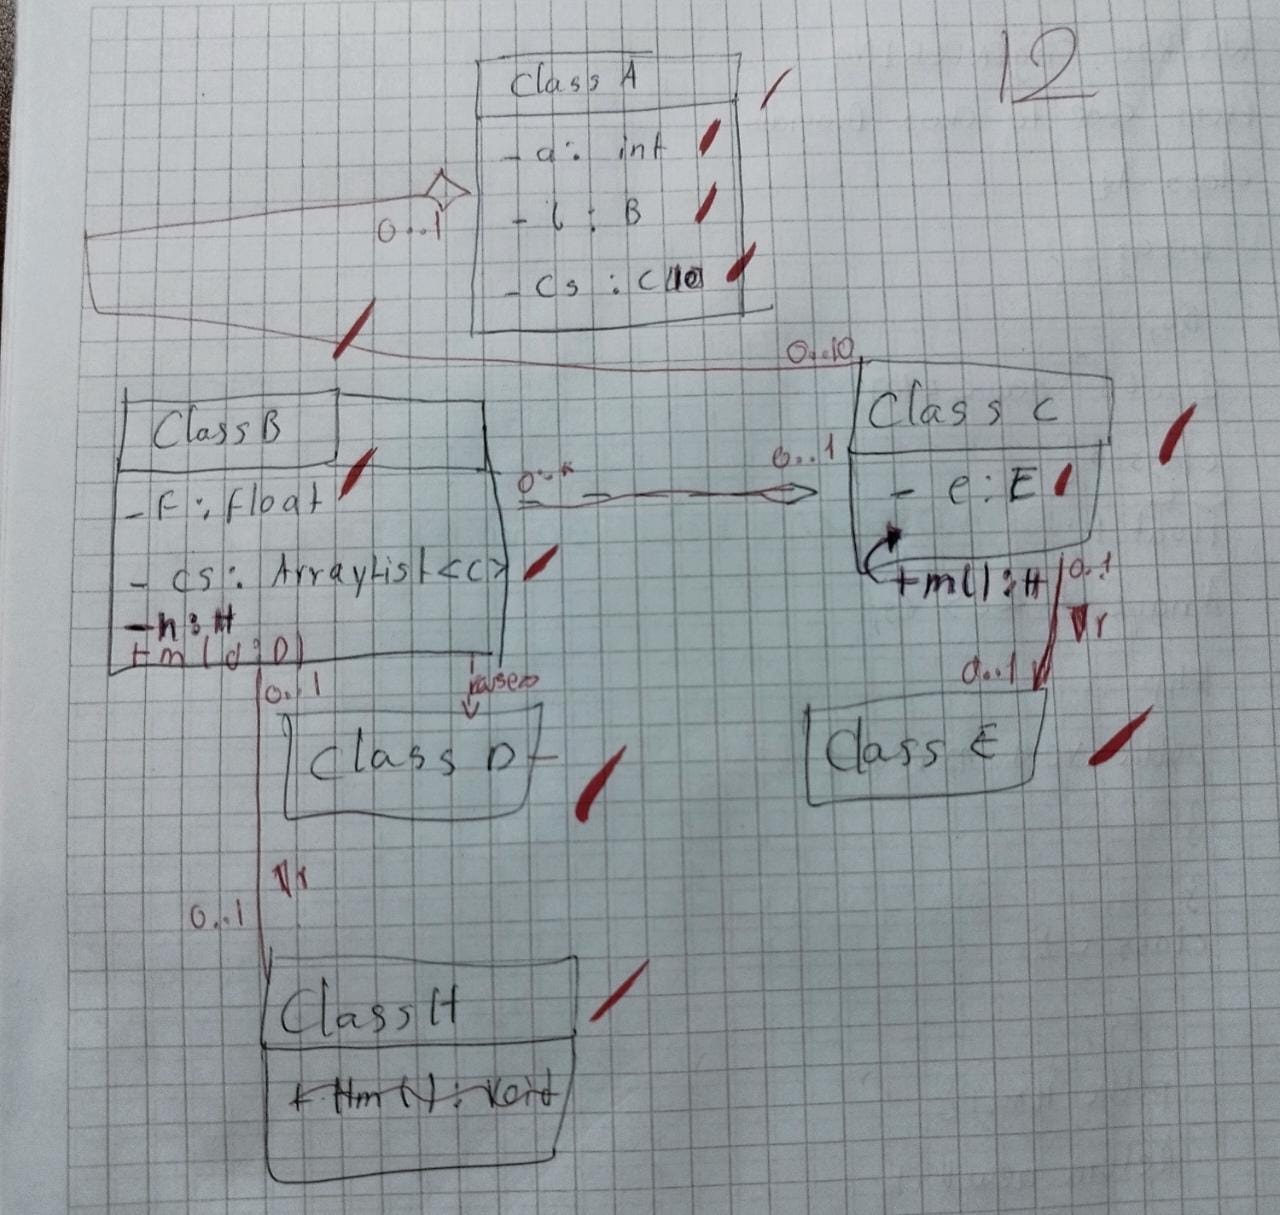 12
Class A
- a: int
- i : B
- Cs : C
0..1
0..10
Class B
- F: float
- cs: ArrayList<C>
- h: H
+ m(d:D)
0..*
0..1
Class C
- e: E
+m():H
0..1
r
0..1
0..1
Class D
Class E
r
0..1
Class H
+ Hm(): Void